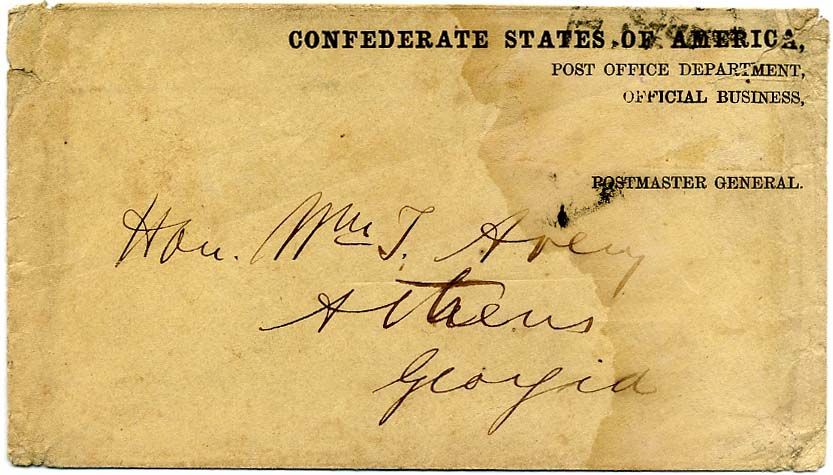 CONFEDERATE STATES OF AMERICA,
POST OFFICE DEPARTMENT,
OFFICIAL BUSINESS,
POSTMASTER GENERAL.
Hon. Wm T. Avery
Athens
Georgia